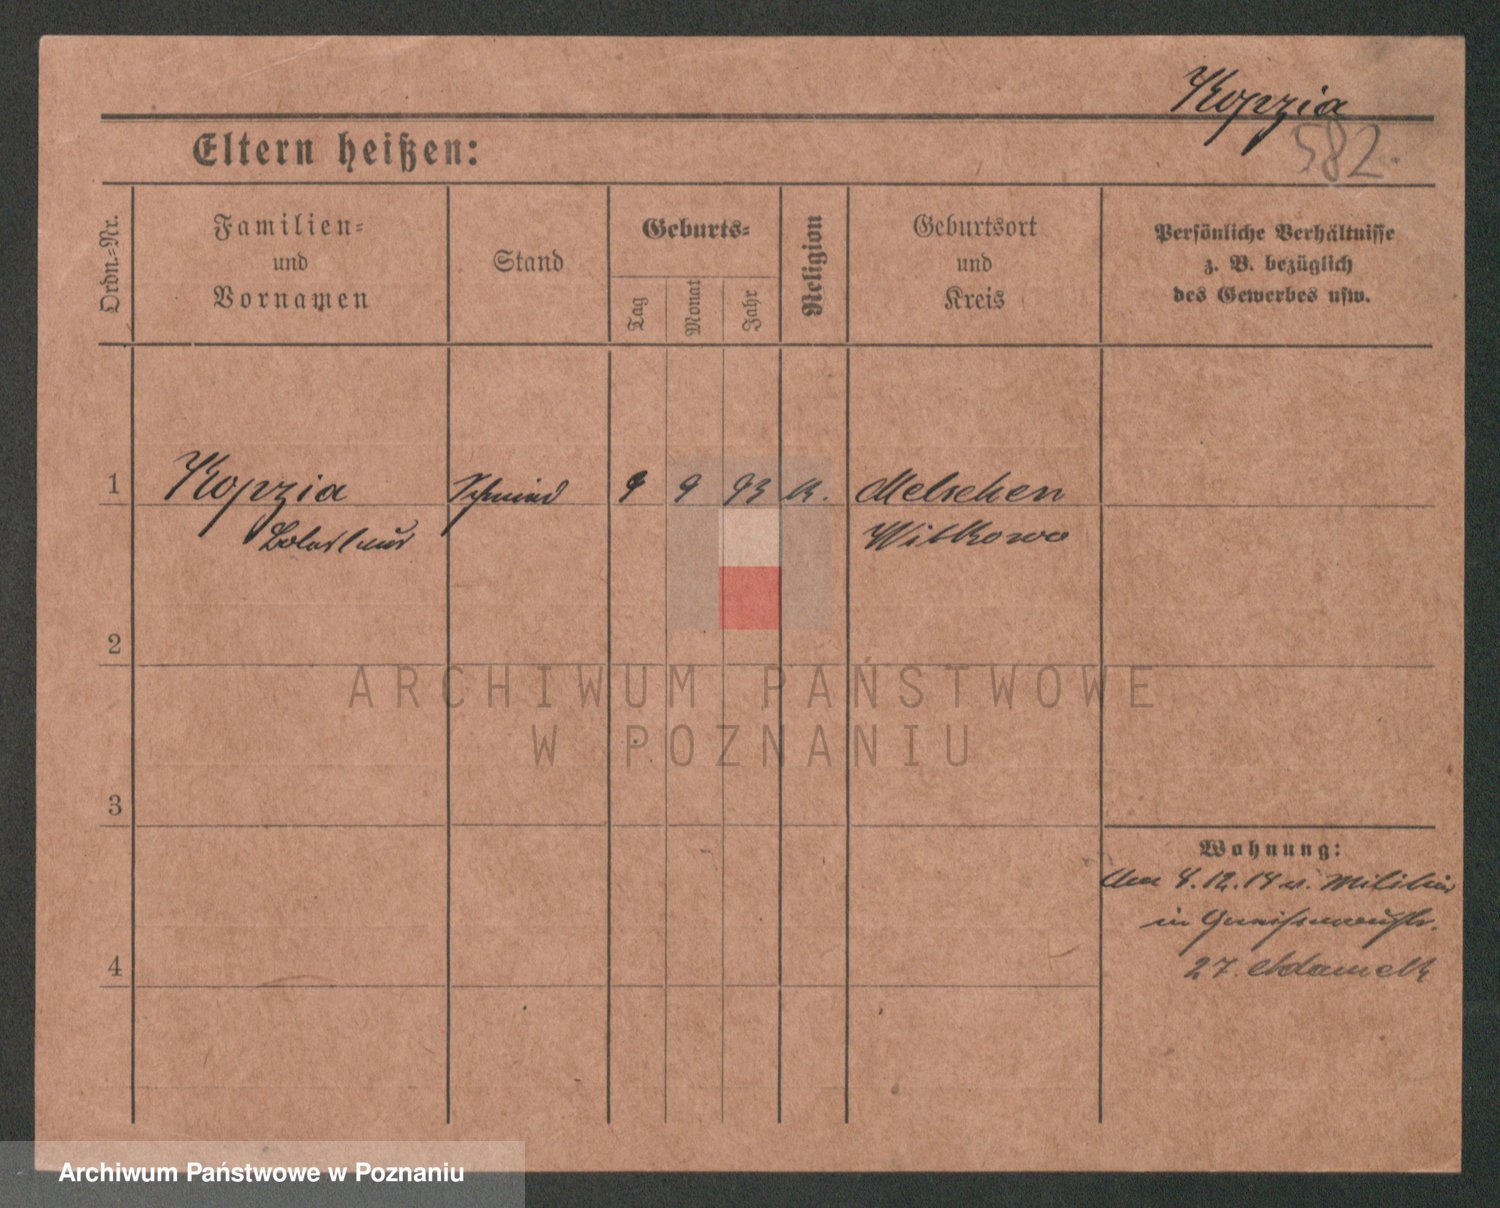 Kopzia
582.
Eltern heißen:
Ordn.-Nr.
Familien-
und
Vornamen
Stand
Geburts-
Tag
Monat
Jahr
Religion
Geburtsort
und
Kreis
Persönliche Verhältnisse
z. B. bezüglich
des Gewerbes usw.
1
Kopzia
Boleslaus
Schmied
9
9
93
k.
Melschen
Witkowo
2
ARCHIWUM PAŃSTWOWE
W POZNANIU
3
Wohnung:
Am 4.12.14 v. Militär
in
27. Adamek
4
Archiwum Państwowe w Poznaniu